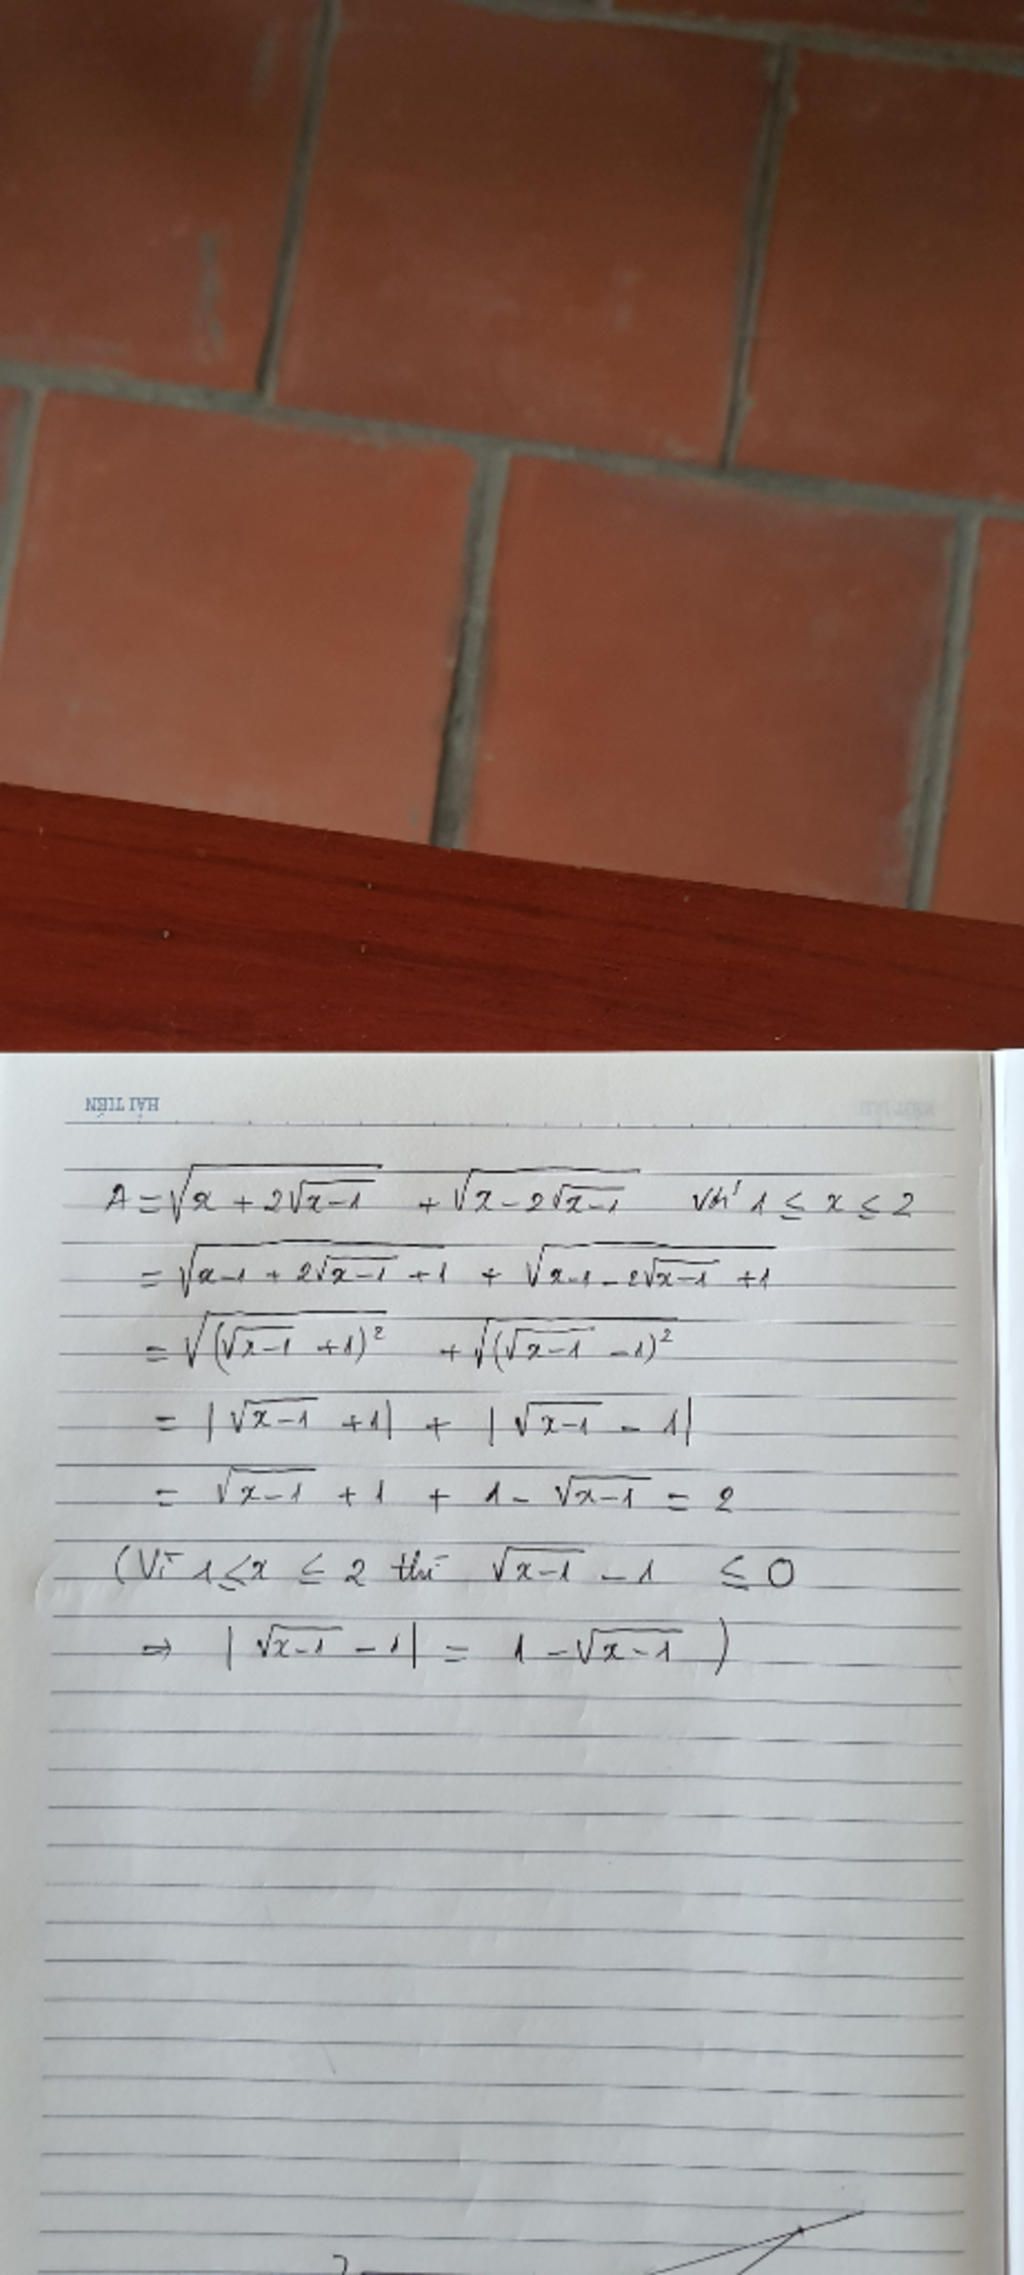 HẢI TIẾN
A = √(x + 2√(x-1)) + √(x - 2√(x-1)) với 1 ≤ x ≤ 2
= √(x-1 + 2√(x-1) + 1) + √(x-1 - 2√(x-1) + 1)
= √((√(x-1) + 1)²) + √((√(x-1) - 1)²)
= |√(x-1) + 1| + |√(x-1) - 1|
= √(x-1) + 1 + 1 - √(x-1) = 2
(Vì 1 ≤ x ≤ 2 thì √(x-1) - 1 ≤ 0
⇒ |√(x-1) - 1| = 1 - √(x-1))